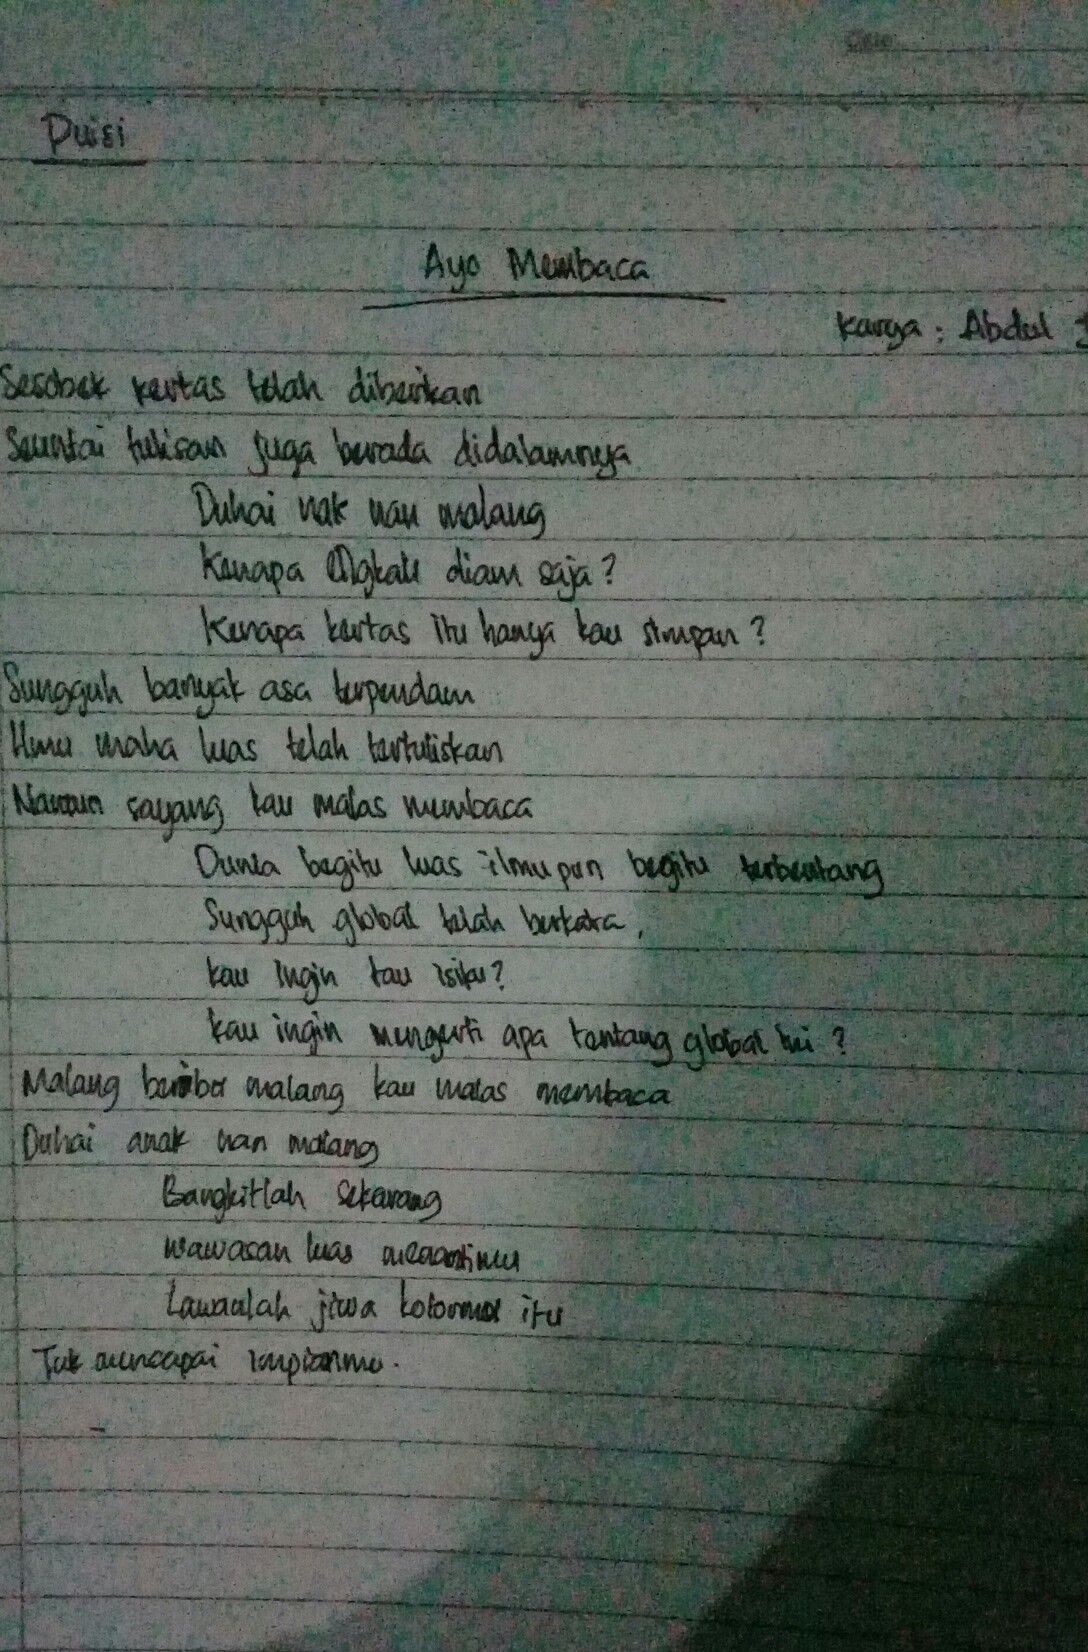 Puisi
Ayo Membaca
Karya : Abdul
Sesobek kertas telah diberikan
Seuntai tulisan juga berada didalamnya
Duhai nak nan malang
Kenapa Engkau diam saja ?
Kenapa kertas itu hanya kau simpan ?
Sungguh banyak asa terpendam
Ilmu maha luas telah tertuliskan
Namun sayang kau malas membaca
Dunia begitu luas ilmu pun begitu terbentang
Sungguh global telah berkata,
kau ingin tau isiku ?
kau ingin mengerti apa tentang global ini ?
Malang beribu malang kau malas membaca
Duhai anak nan malang
Bangkitlah sekarang
wawasan luas menantimu
Lawanlah jiwa kotormu itu
Tuk mencapai impianmu.